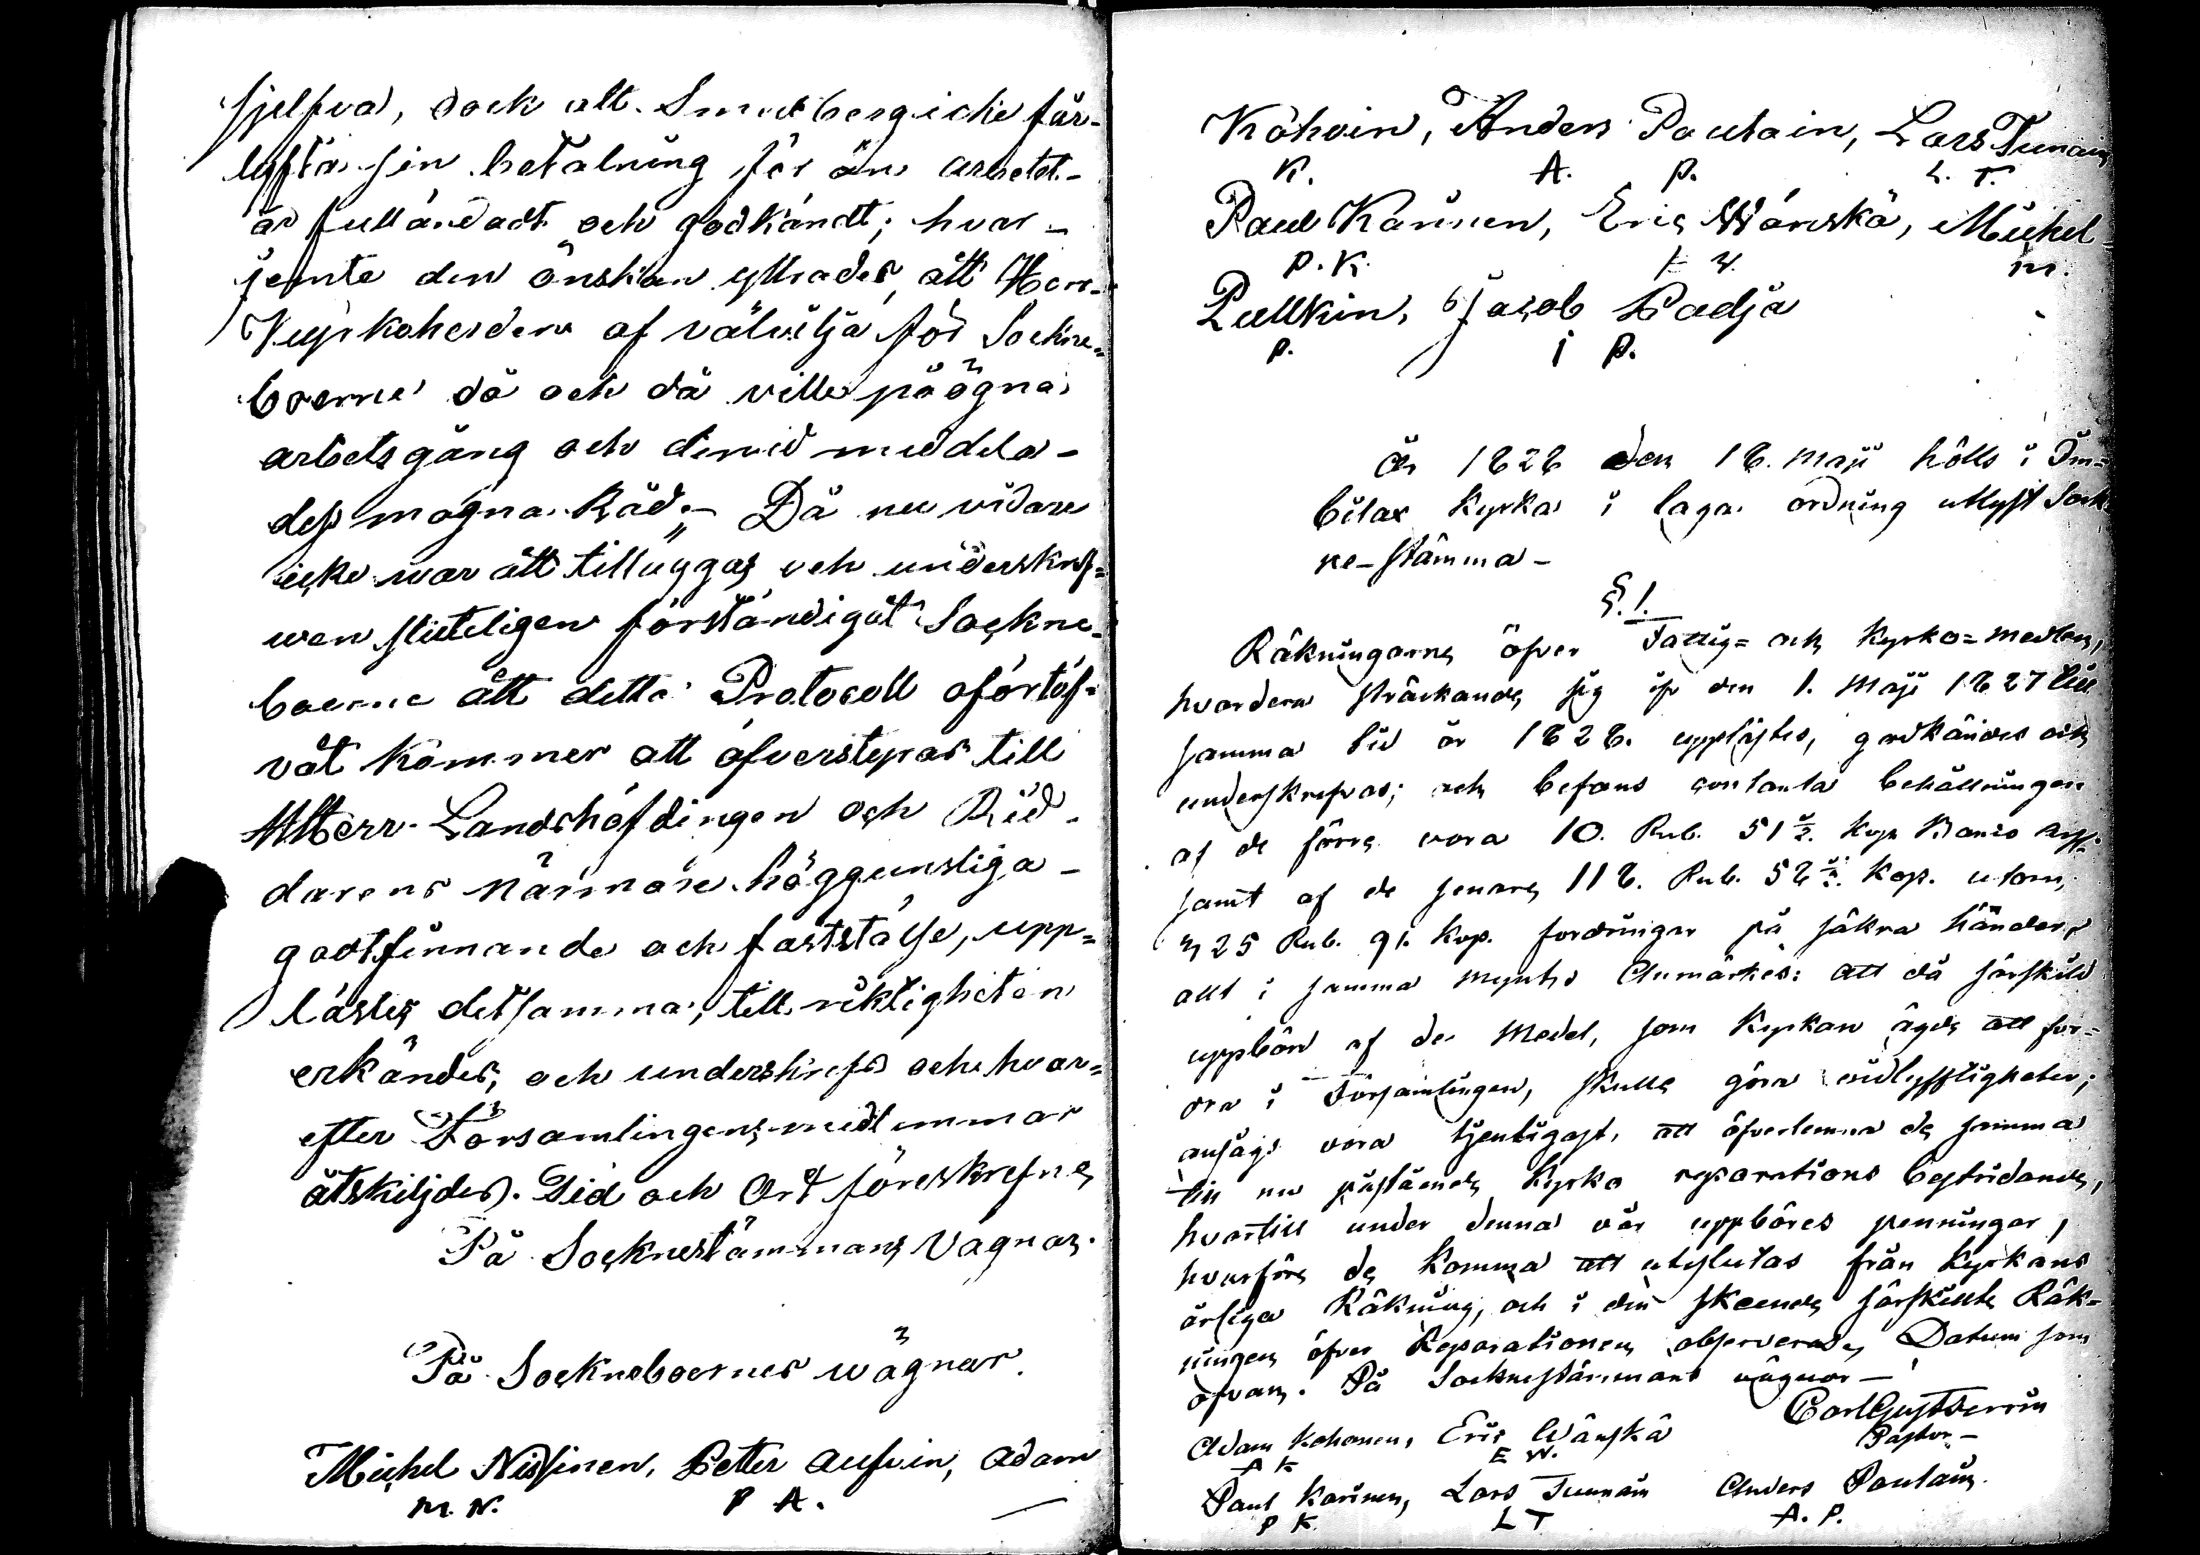 sjelfva, dock att Smedberg icke får
lyfta sin betalning för än arbetet
är fulländadt och godkändt; hvar-
jemte den önskan yttrades, att Herr
Kyrkoherden af välvilja för Sockne-
boerne då och då ville påögna
arbets gång och dervid meddela
dess mogna Råd. Då nu vidare
icke war att tilläggas och underskref-
wen sluteligen förständigat Sockne-
boerne att detta Protocoll oförtöf-
vat kommer att öfverstyras till
Herr Landshöfdingen och Rid-
darens närmare höggunstiga
godtfinnande och fastställse, upp-
lästes detsamma, till riktigheten
erkändes, och underskrefs och hvar-
efter Församlingens medlemmar
åtskiljdes. Tid och Ort föreskrefne
På Socknestämmans vägnar.
På Sockneboernes wägnar.
Michel Nissinen, Petter Aufvin, Adam
M. N. P A.
Kohvin, Anders Poutain, Lars Tunnain
K. A. P. L. T.
Paul Karinen, Eric Wänskä, Michel
P. K. E W. M.
Pullkin, Jacob Padja
P. I P.
År 1828 den 18. Maji hölls i Im-
bilax Kyrka i laga ordning utlyst Sock-
ne-stämma-
§. 1.
Räkningarne öfver Fattig= och Kyrko=medlen,
hvardera sträckande sig ifr den 1. Maji 1827 till
samma tid år 1828. upplästes, godkändes och
underskrefvos; och befans contanta behållningen
af de förra vara 10. Rub. 51 4/7. Kop Banco Ass.
samt af de senare 118. Rub. 58 4/7. Kop. utom
425 Rub. 91. Kop. fordringar på säkra händer,
allt i samma mynt. Anmärktes: att då särskild
uppbörd af de Medel, som Kyrkan ägde att for-
dra i Församlingen, skulle göra vidlyfftigheter;
ansågs vara tjenligast, att öfverlemna de samma
till nu påstående Kyrko reparations bestridande,
hvartill under denna vår uppbäres penningar,
hvarföre de komma att uteslutas från Kyrkans
årliga Räkning, och i den skeende särskilte Räk-
ningen öfver Reparationen observeras, Datum som
ofvan. På Socknestämmans vägnar -
Carl Gust Perrin
Adam Kohonen, Eric Wänskä Pastor -
A K E W.
Paul Karinen, Lars Tunnain Anders Poutain
P K L T A. P.